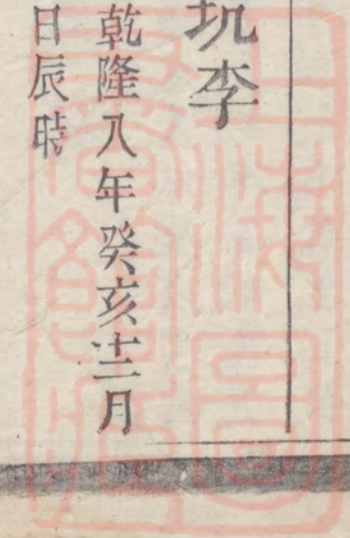 坑李
乾隆八年癸亥十二月
日辰時